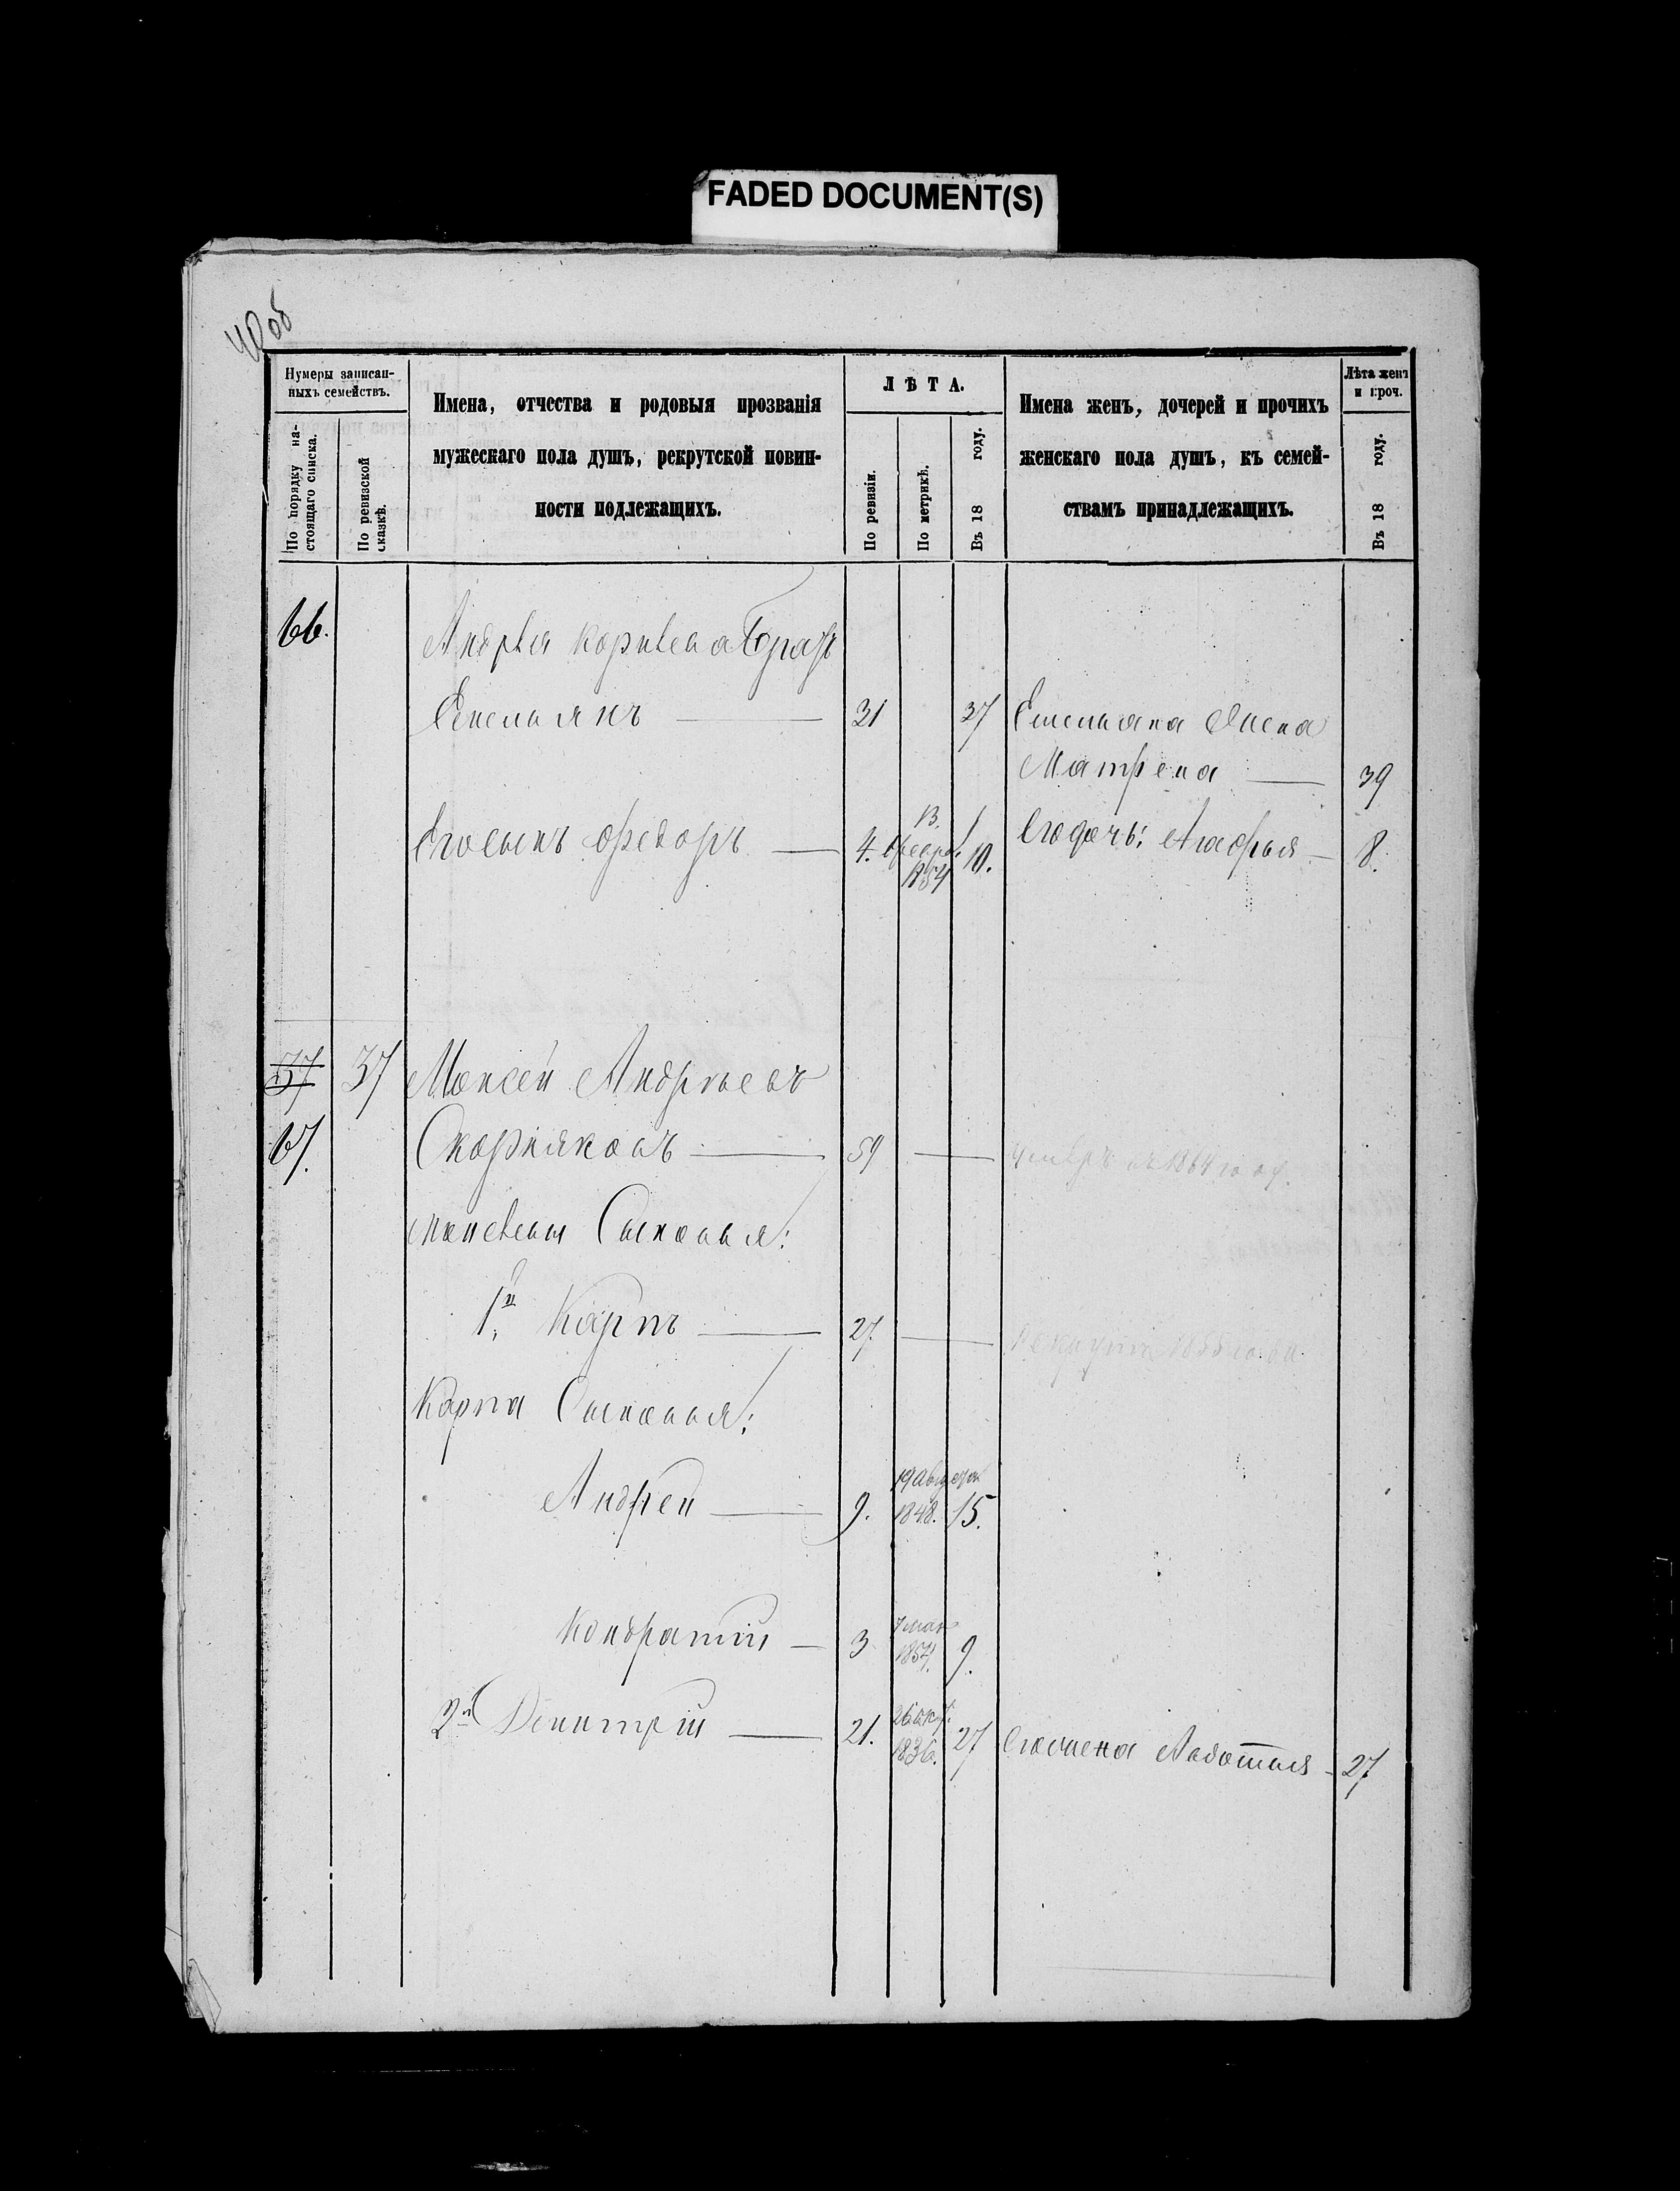 FADED DOCUMENT(S)
40об
Нумеры записан-
ныхъ семействъ.
По порядку на-
стоящаго списка.
По ревизской
сказкѣ.
Имена, отчества и родовыя прозванія
мужескаго пола душъ, рекрутской повин-
ности подлежащихъ.
ЛѢТА.
По ревизіи.
По метрикѣ.
Въ 18 году.
Имена женъ, дочерей и прочихъ
женскаго пола душъ, къ семей-
ствамъ принадлежащихъ.
Лѣта женъ
и проч.
Въ 18 году.
66.
Андрея Корнѣева братъ
Емельянъ 31 37 Емельяна жена
Матрена 39
Его сынъ Федоръ 4. 13. февр. 1854 10. Его дочь: Агафья 8.
37 37 Моисей Андреевъ
67. Скорняковъ 59 умеръ въ 1864 году.
Моисѣя Сыновья:
1й Карпъ 27 Рекрутъ 1855 года
Карпа Сыновья:
Андрей 9. 19 августа 1848. 15.
Кондратій 3 7 мая 1854. 9.
2й Димитрій 21. 26 окт. 1836. 27 Его жена Авдотья 27